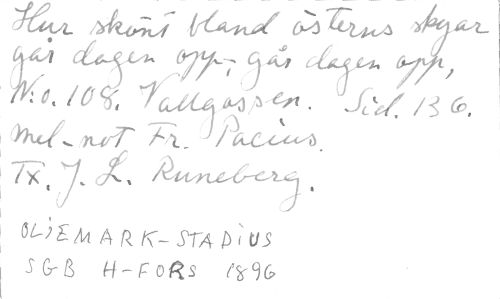 Hur skönt bland österns skyar
går dagen opp, går dagen opp,
N:o. 108. Vallgossen. Sid. 136.
mel-not Fr. Pacius.
Tx. J. L. Runeberg.
OLIEMARK-STADIUS
SGB H-FORS 1896